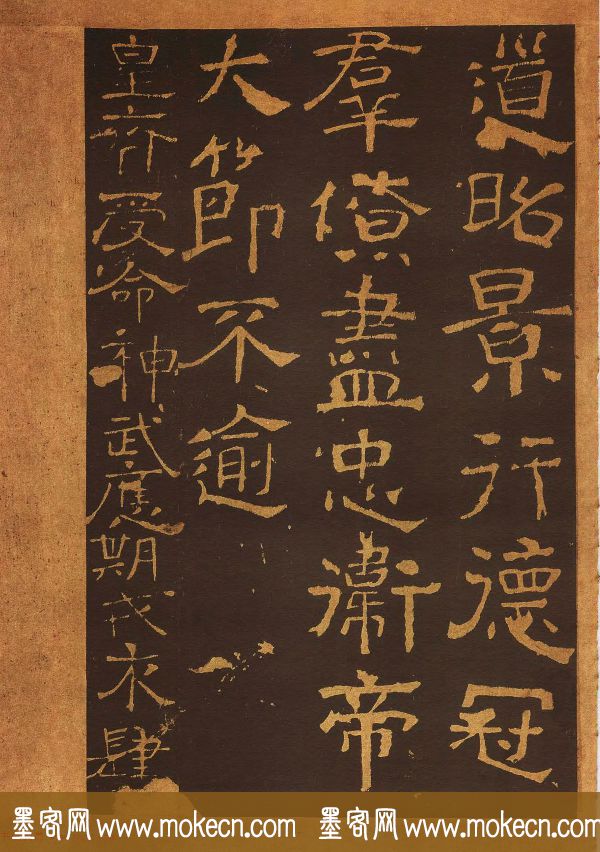 道昭景行德冠
羣僚盡忠衛帝
大節不逾
皇帝受命神武應期戎衣肆
墨客网 www.mokecn.com 墨客网 www.mokecn.com